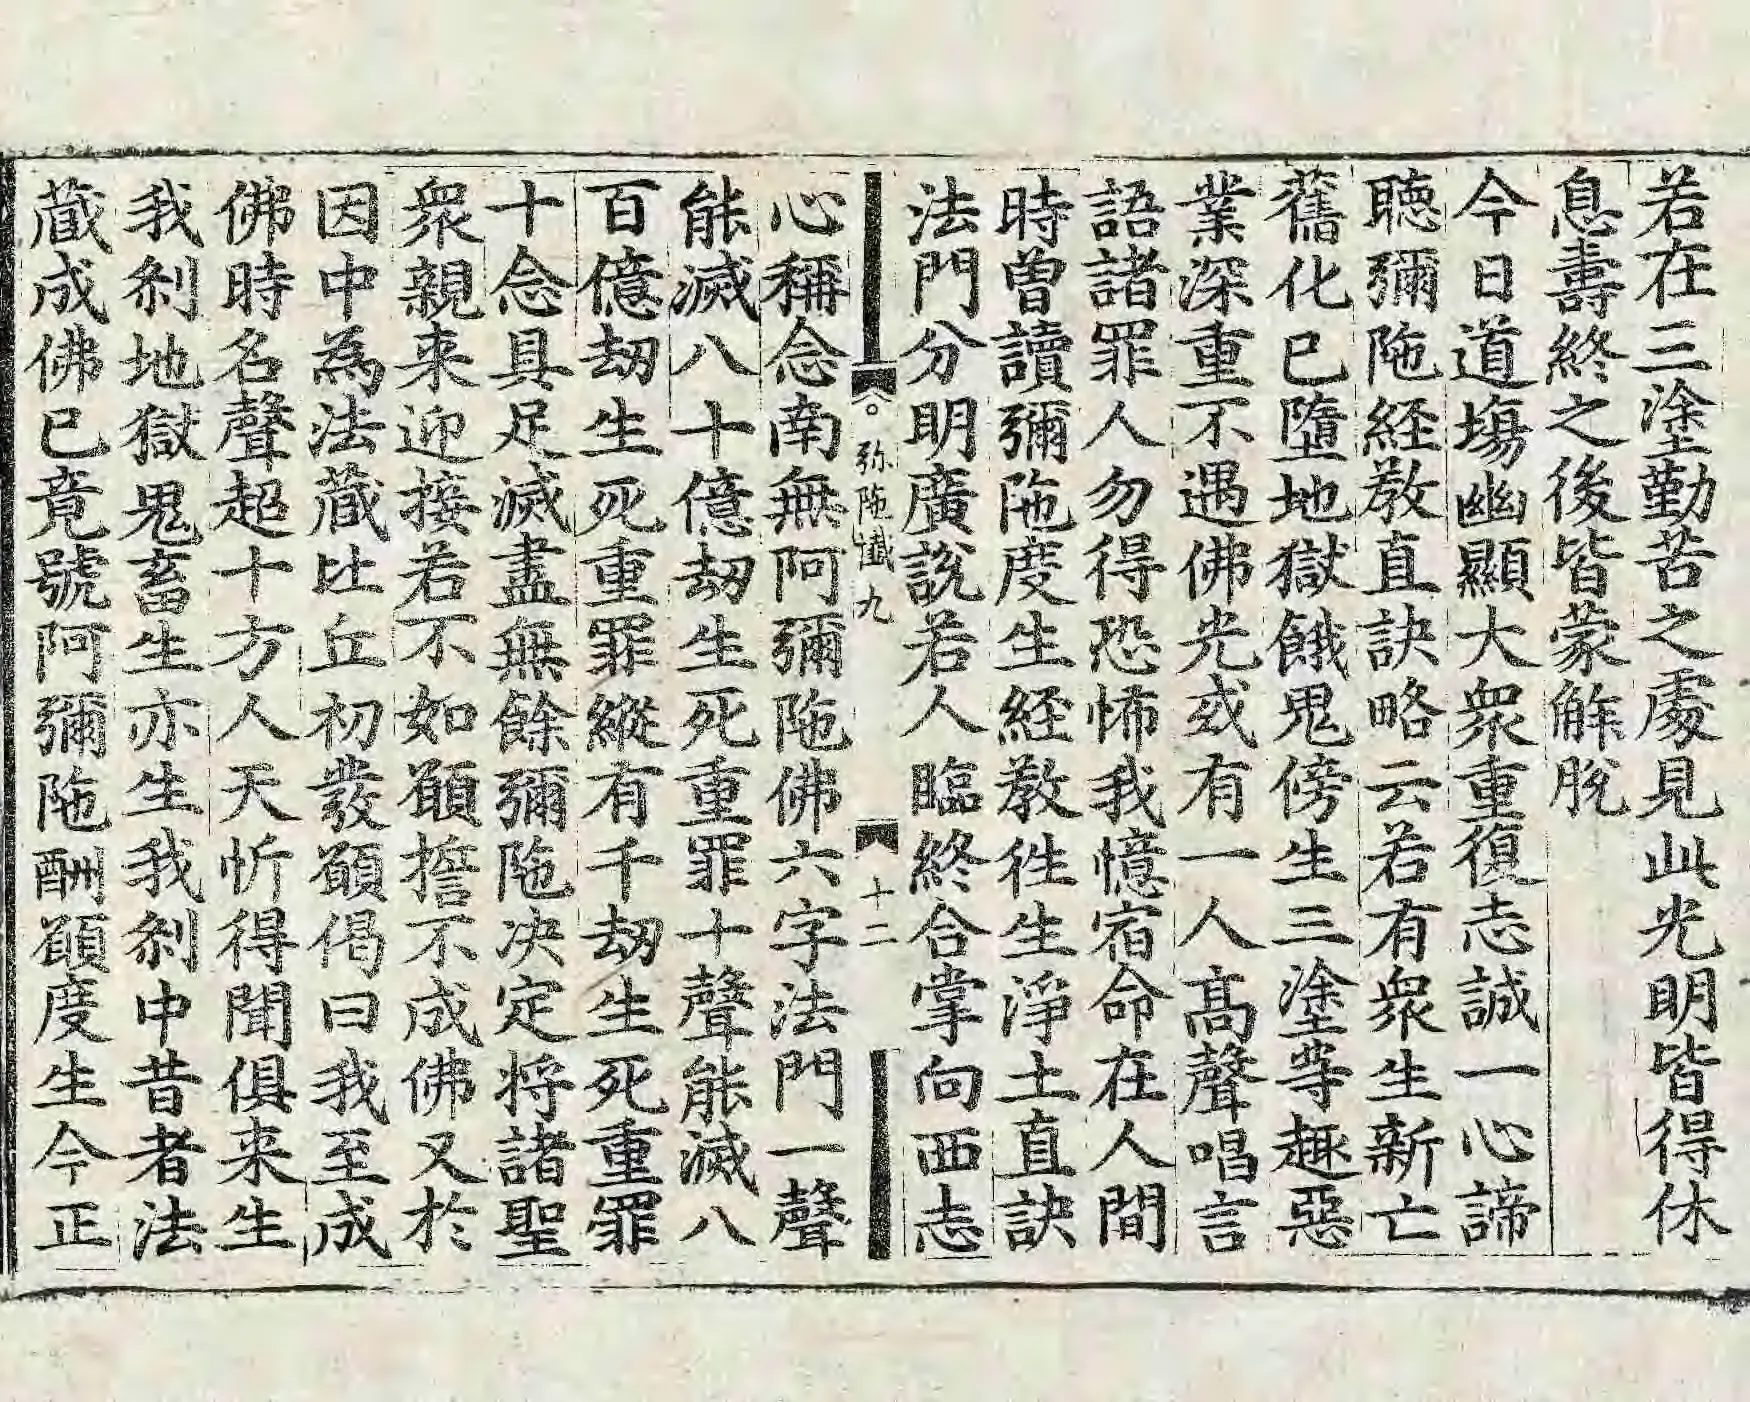 若在三塗勤苦之處見此光明皆得休
息壽終之後皆蒙解脫
今日道塲幽顯大衆重復志誠一心諦
聴彌陁経教直訣略云若有衆生新亡
舊化已墮地獄餓鬼傍生三塗等趣惡
業深重不遇佛光或有一人高聲唱言
語諸罪人勿得恐怖我憶宿命在人間
時曽讀彌陁度生経教徃生淨土直訣
法門分明廣說若人臨終合掌向西志
弥陁懺九
十二
心稱念南無阿彌陁佛六字法門一聲
能滅八十億劫生死重罪十聲能滅八
百億劫生死重罪縱有千劫生死重罪
十念具足滅盡無餘彌陁决定将諸聖
衆親来迎接若不如願擔不成佛又於
因中為法藏比丘初發願偈曰我至成
佛時名聲超十方人天忻得聞俱来生
我刹地獄鬼畜生亦生我刹中昔者法
藏成佛已竟號阿彌陁酬願度生今正